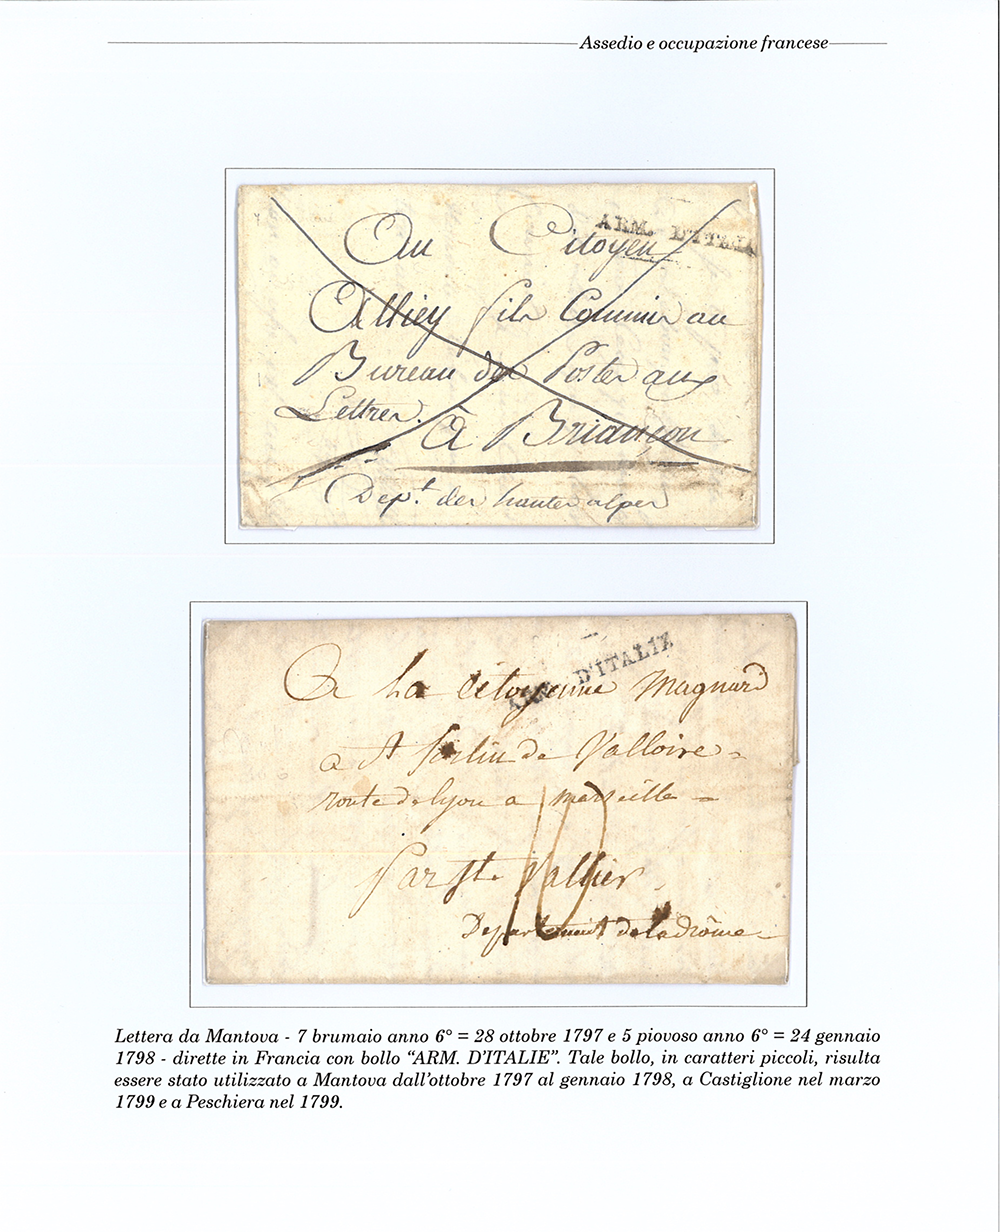 Assedio e occupazione francese
ARM. D'ITALIE
Au Citoyen
Alliey fils Commis au
Bureau des Postes aux
Lettres.
À Briançon
Dep.t des hautes alpes
ARM. D'ITALIE
A La Citoyenne Magnard
a St Sorlin de Valloire =
route de lyon a marseille =
10
par St Vallier
Departement de la drôme
Lettera da Mantova - 7 brumaio anno 6° = 28 ottobre 1797 e 5 piovoso anno 6° = 24 gennaio
1798 - dirette in Francia con bollo “ARM. D’ITALIE”. Tale bollo, in caratteri piccoli, risulta
essere stato utilizzato a Mantova dall’ottobre 1797 al gennaio 1798, a Castiglione nel marzo
1799 e a Peschiera nel 1799.